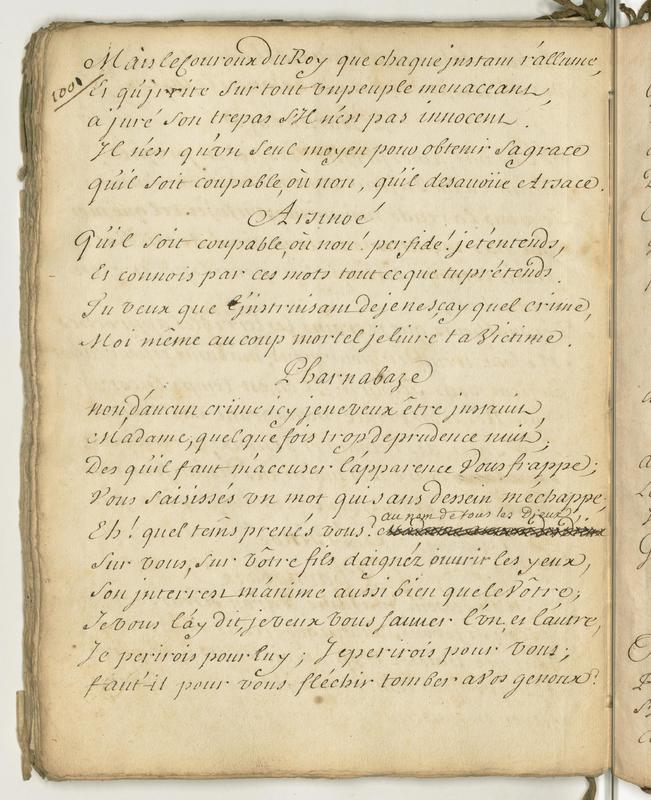 Mais le Couroux du Roy que chaque instant r'allume,
1001
Et qu'jrrite Surtout vn peuple menaceant,
a juré Son trepas S'Il n'est pas innocent.
Il n'est qu'vn Seul moyen pour obtenir Sa grace
qu'il Soit coupable, où non, qu'il desavoüe Arsace.
Arsinoé
Qu'il Soit coupable, où non! perfide! je t'entends,
Et connois par ces mots tout ce que tu prétends.
Tu veux que t'jnstruisant de je ne sçay quel crime,
Moi même au coup mortel je livre ta Victime.
Pharnabaze
non d'aucun crime icy je ne veux être jnstruit,
Madame, quelque fois trop de prudence nuit,
Des qu'il faut m'accuser l'apparence Vous frappe;
Vous Saisissés vn mot qui Sans dessein m'échappe.
au nom de tous les Dieux
Eh! quel tems prenés vous?
Sur vous, Sur vôtre fils daignéz ouvrir les yeux,
Son jnterrest m'anime aussi bien que le Vôtre;
Je vous l'ay dit, je veux Vous Sauver l'vn, et l'autre,
Je perirois pour luy; Je perirois pour Vous;
faut-il pour vous fléchir tomber a Vos genoux?